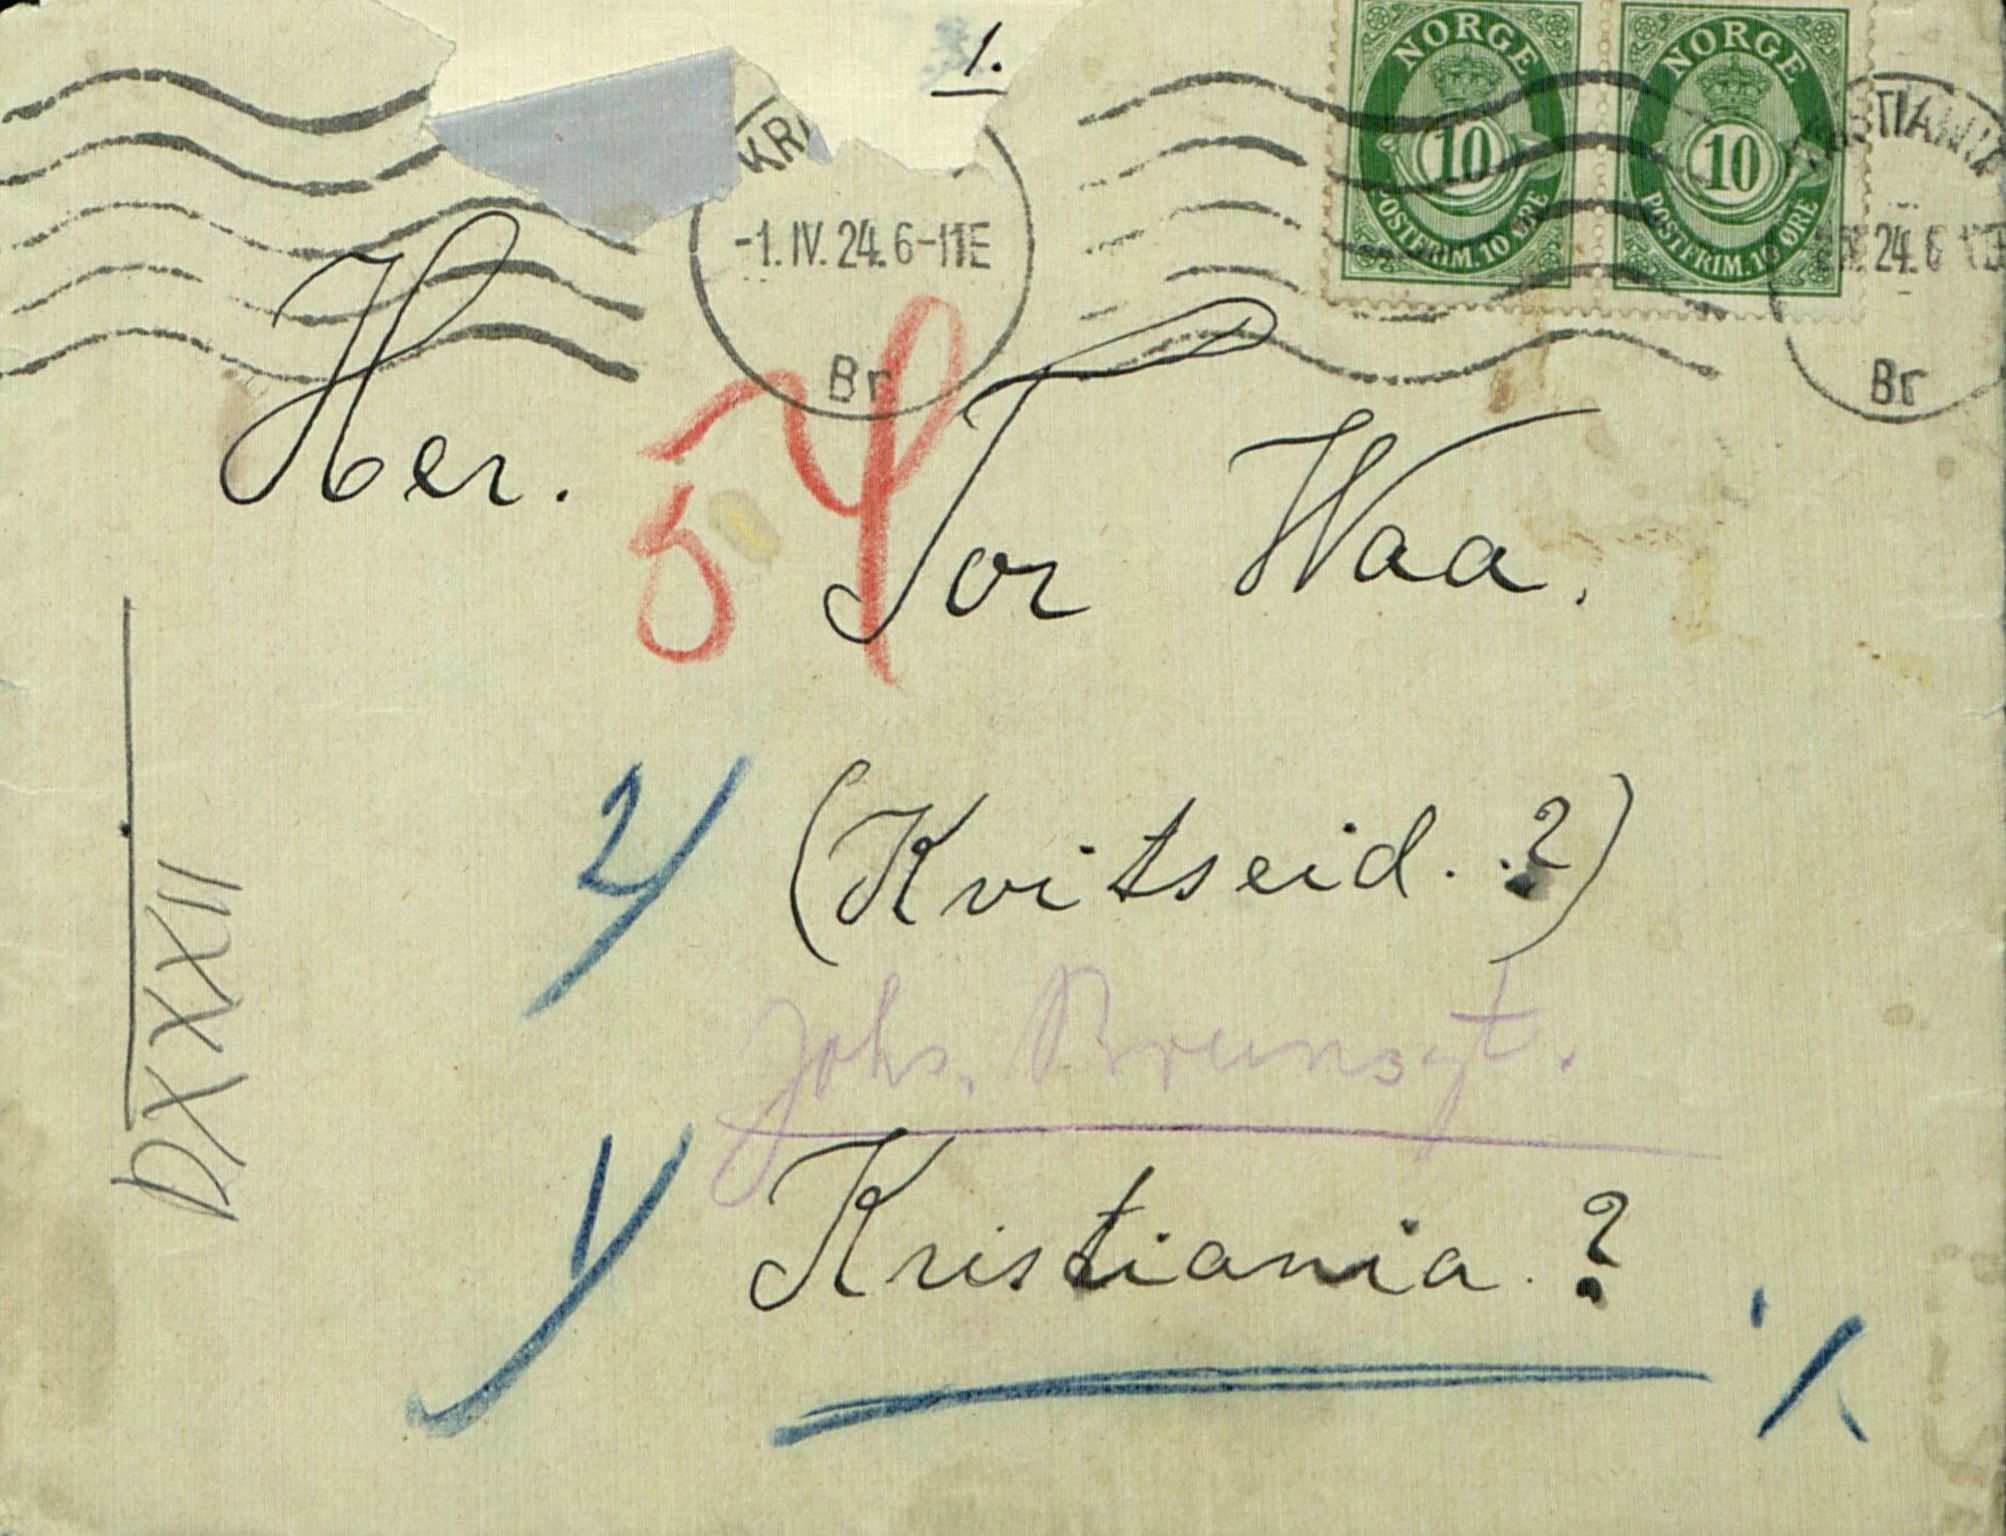 1.
NORGE NORGE
10 10
POSTFRIM. 10 ØRE POSTFRIM. 10 ØRE
KRI
-1.IV.24.6-11E
Br
24.6
Br
Her.
54
Tor Waa.
(Kvitseid. ?)
Johs. Brunsgt.
Kristiania. ?
DXXXII